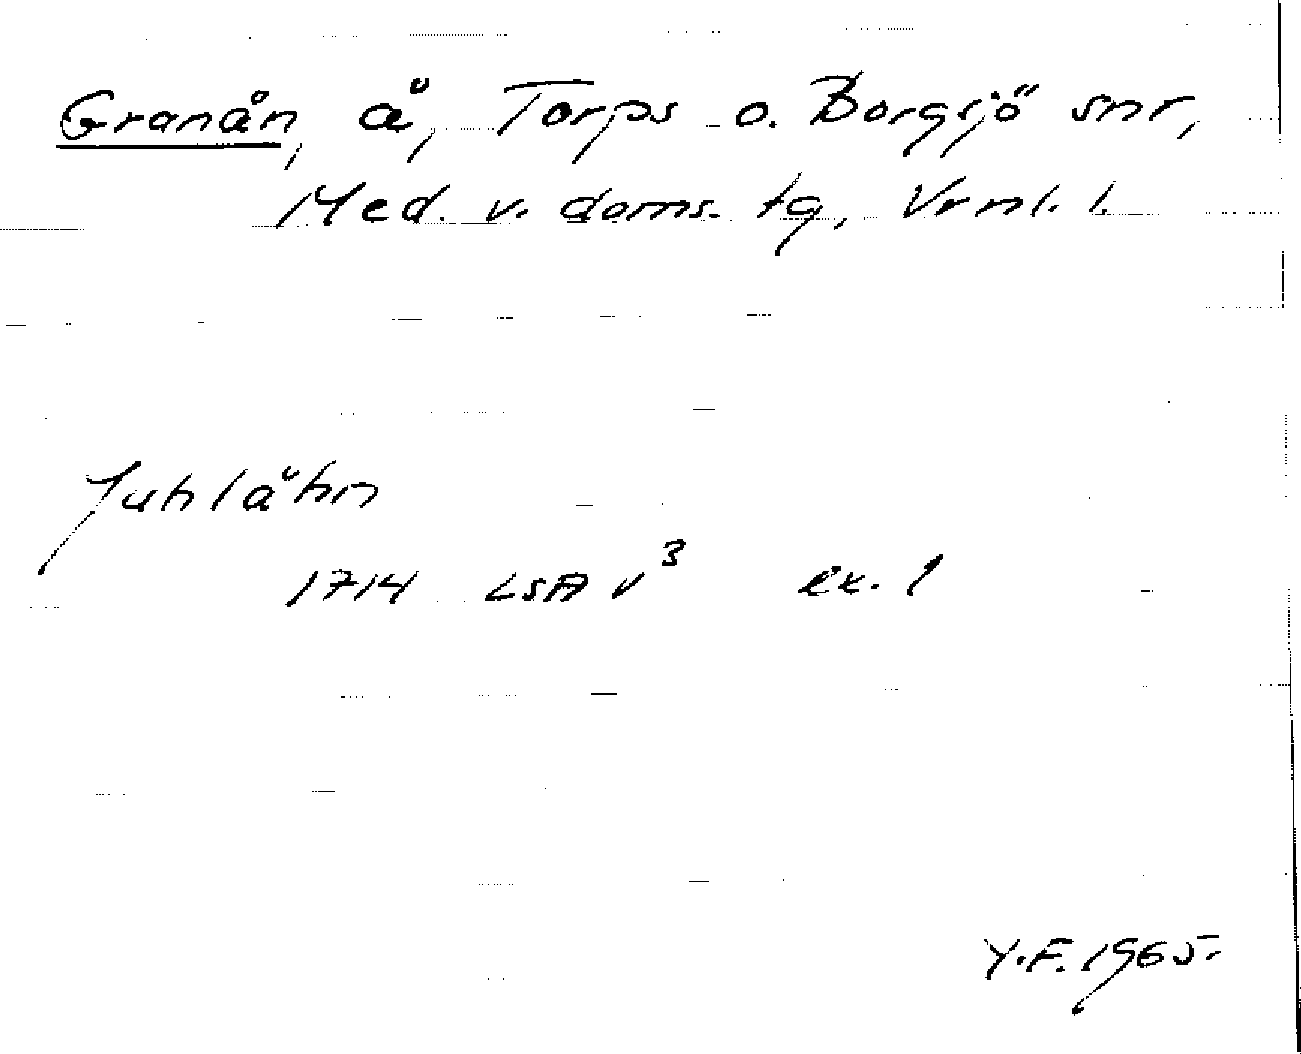 Granån, å, Torps o. Borgsjö snr,
Med. v. doms. tg, Vrnl. l.
Juhlåhn
1714 LSA v³ ex. 1
Y.F. 1965.